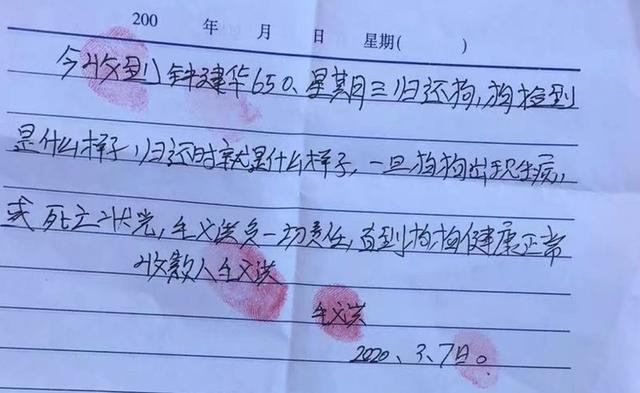 200 年 月 日 星期( )
今收到钟建华650、星期三归还狗,狗捡到
是什么样子,归还时就是什么样子,一旦狗狗出现生病,
或死亡状况,王义洪负一切责任,直到狗狗健康正常
收款人王义洪
王义洪
2020、3、7日。